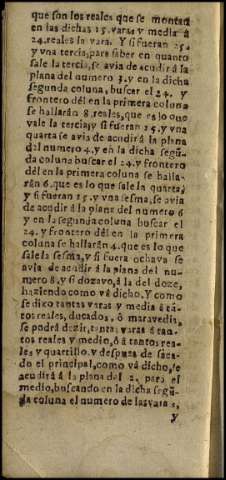 que son los reales que se montan
en las dichas 15. varas y media á
24. reales la vara. Y si fueran 15.
y vna tercia, para saber en quanto
sale la tercia, se avia de acudir á la
plana del numero 3. y en la dicha
segunda coluna, buscar el 24. y
frontero dél en la primera coluna
se hallarán 8. reales, que es lo que
vale la tercia; y si fueran 15. y vna
quarta se avia de acudir á la plana
del numero 4. y en la dicha segũ-
da coluna buscar el 24. y frontero
dél en la primera coluna se halla-
rán 6. que es lo que sale la quarta;
y si fueran 15. y vna sesma, se avia
de acudir á la plana del numero 6
y en la segunda coluna buscar el
24. y frontero dél en la primera
coluna se hallarán 4. que es lo que
sale la sesma, y si fuera ochava se
avia de acudir á la plana del nu-
mero 8. y si dozavo, á la del doze,
haziendo como vá dicho. Y como
se dico tantas varas y media á tã-
tos reales, ducados, ó maravedis,
se podrá dezir, tantas varas á tan-
tos reales y medio, ó á tantos rea-
les y quartillo. y despues de saca-
do el principal, como vá dicho, se
acudirá á la plana del 2. para el
medio, buscando en la dicha segũ-
da coluna el numero de las varas,
y